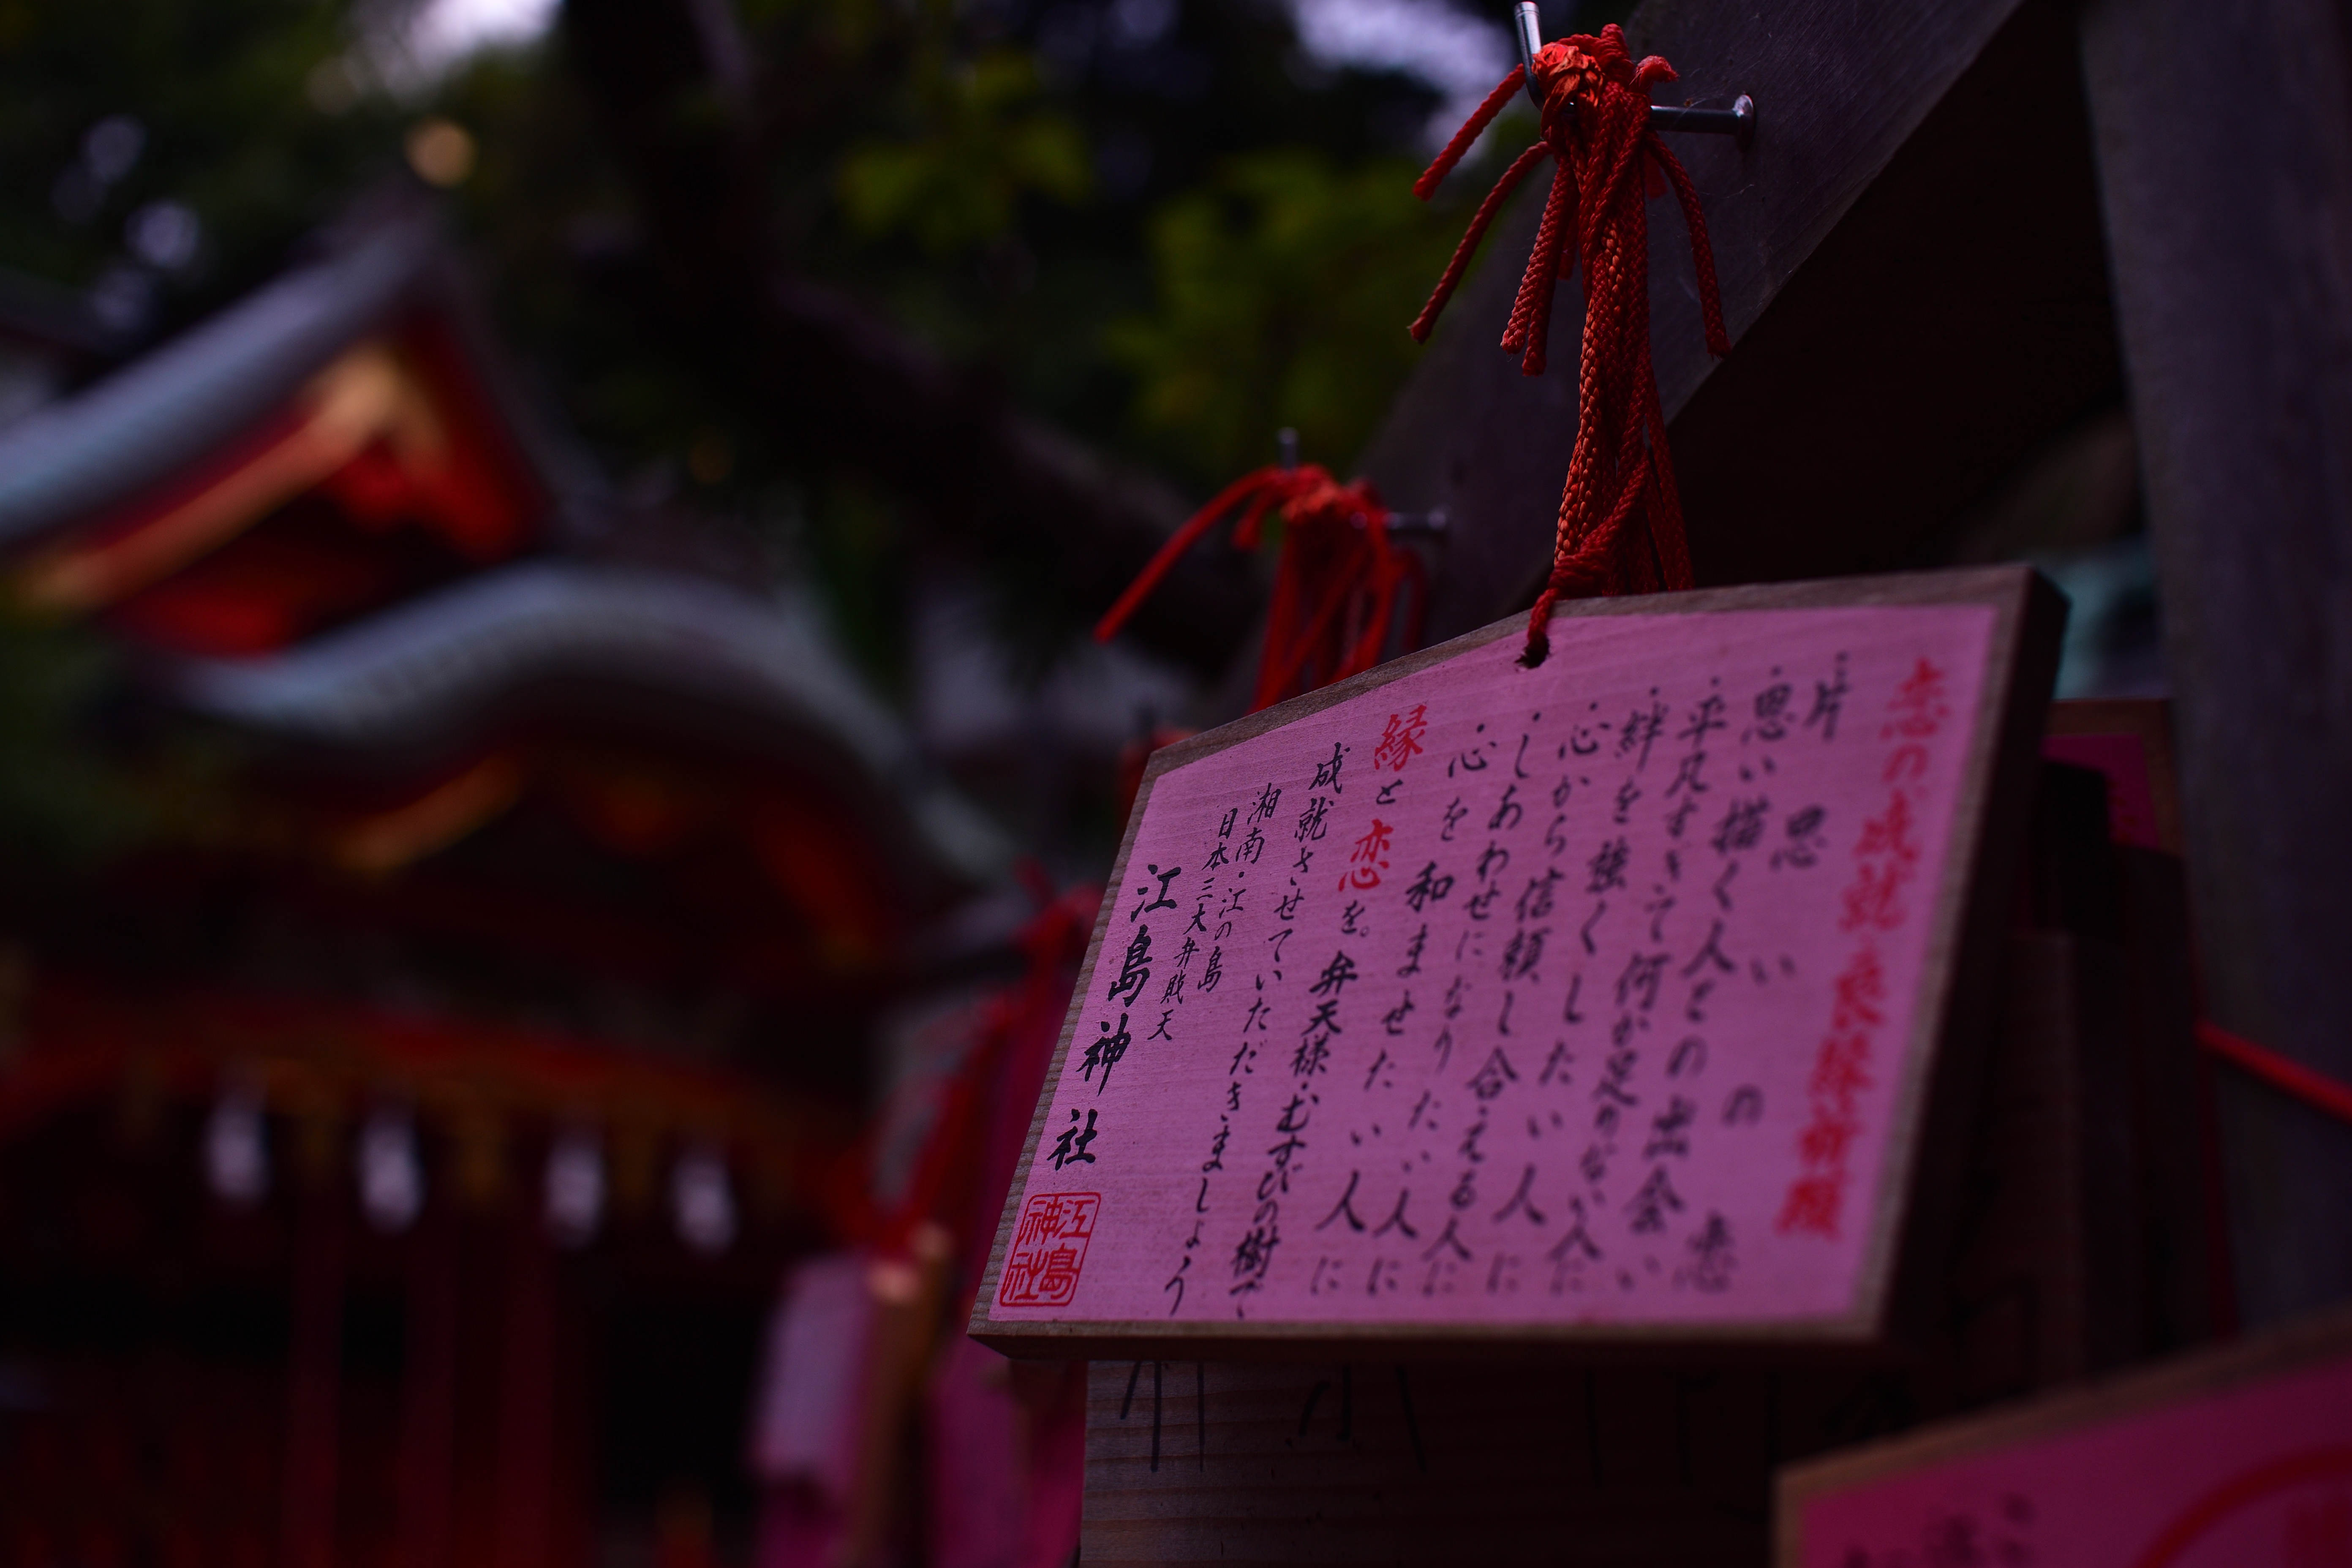 恋の成就 良縁祈願
・片思いの恋
・思い描く人との出会い
・平凡すぎて何か足りない人に
・絆を強くしたい人に
・心から信頼し合える人に
・しあわせになりたい人に
・心を和ませたい人に
縁と恋を。弁天様・むすびの樹で
成就させていただきましょう
湘南・江の島
日本三大弁財天
江島神社
江島
神社